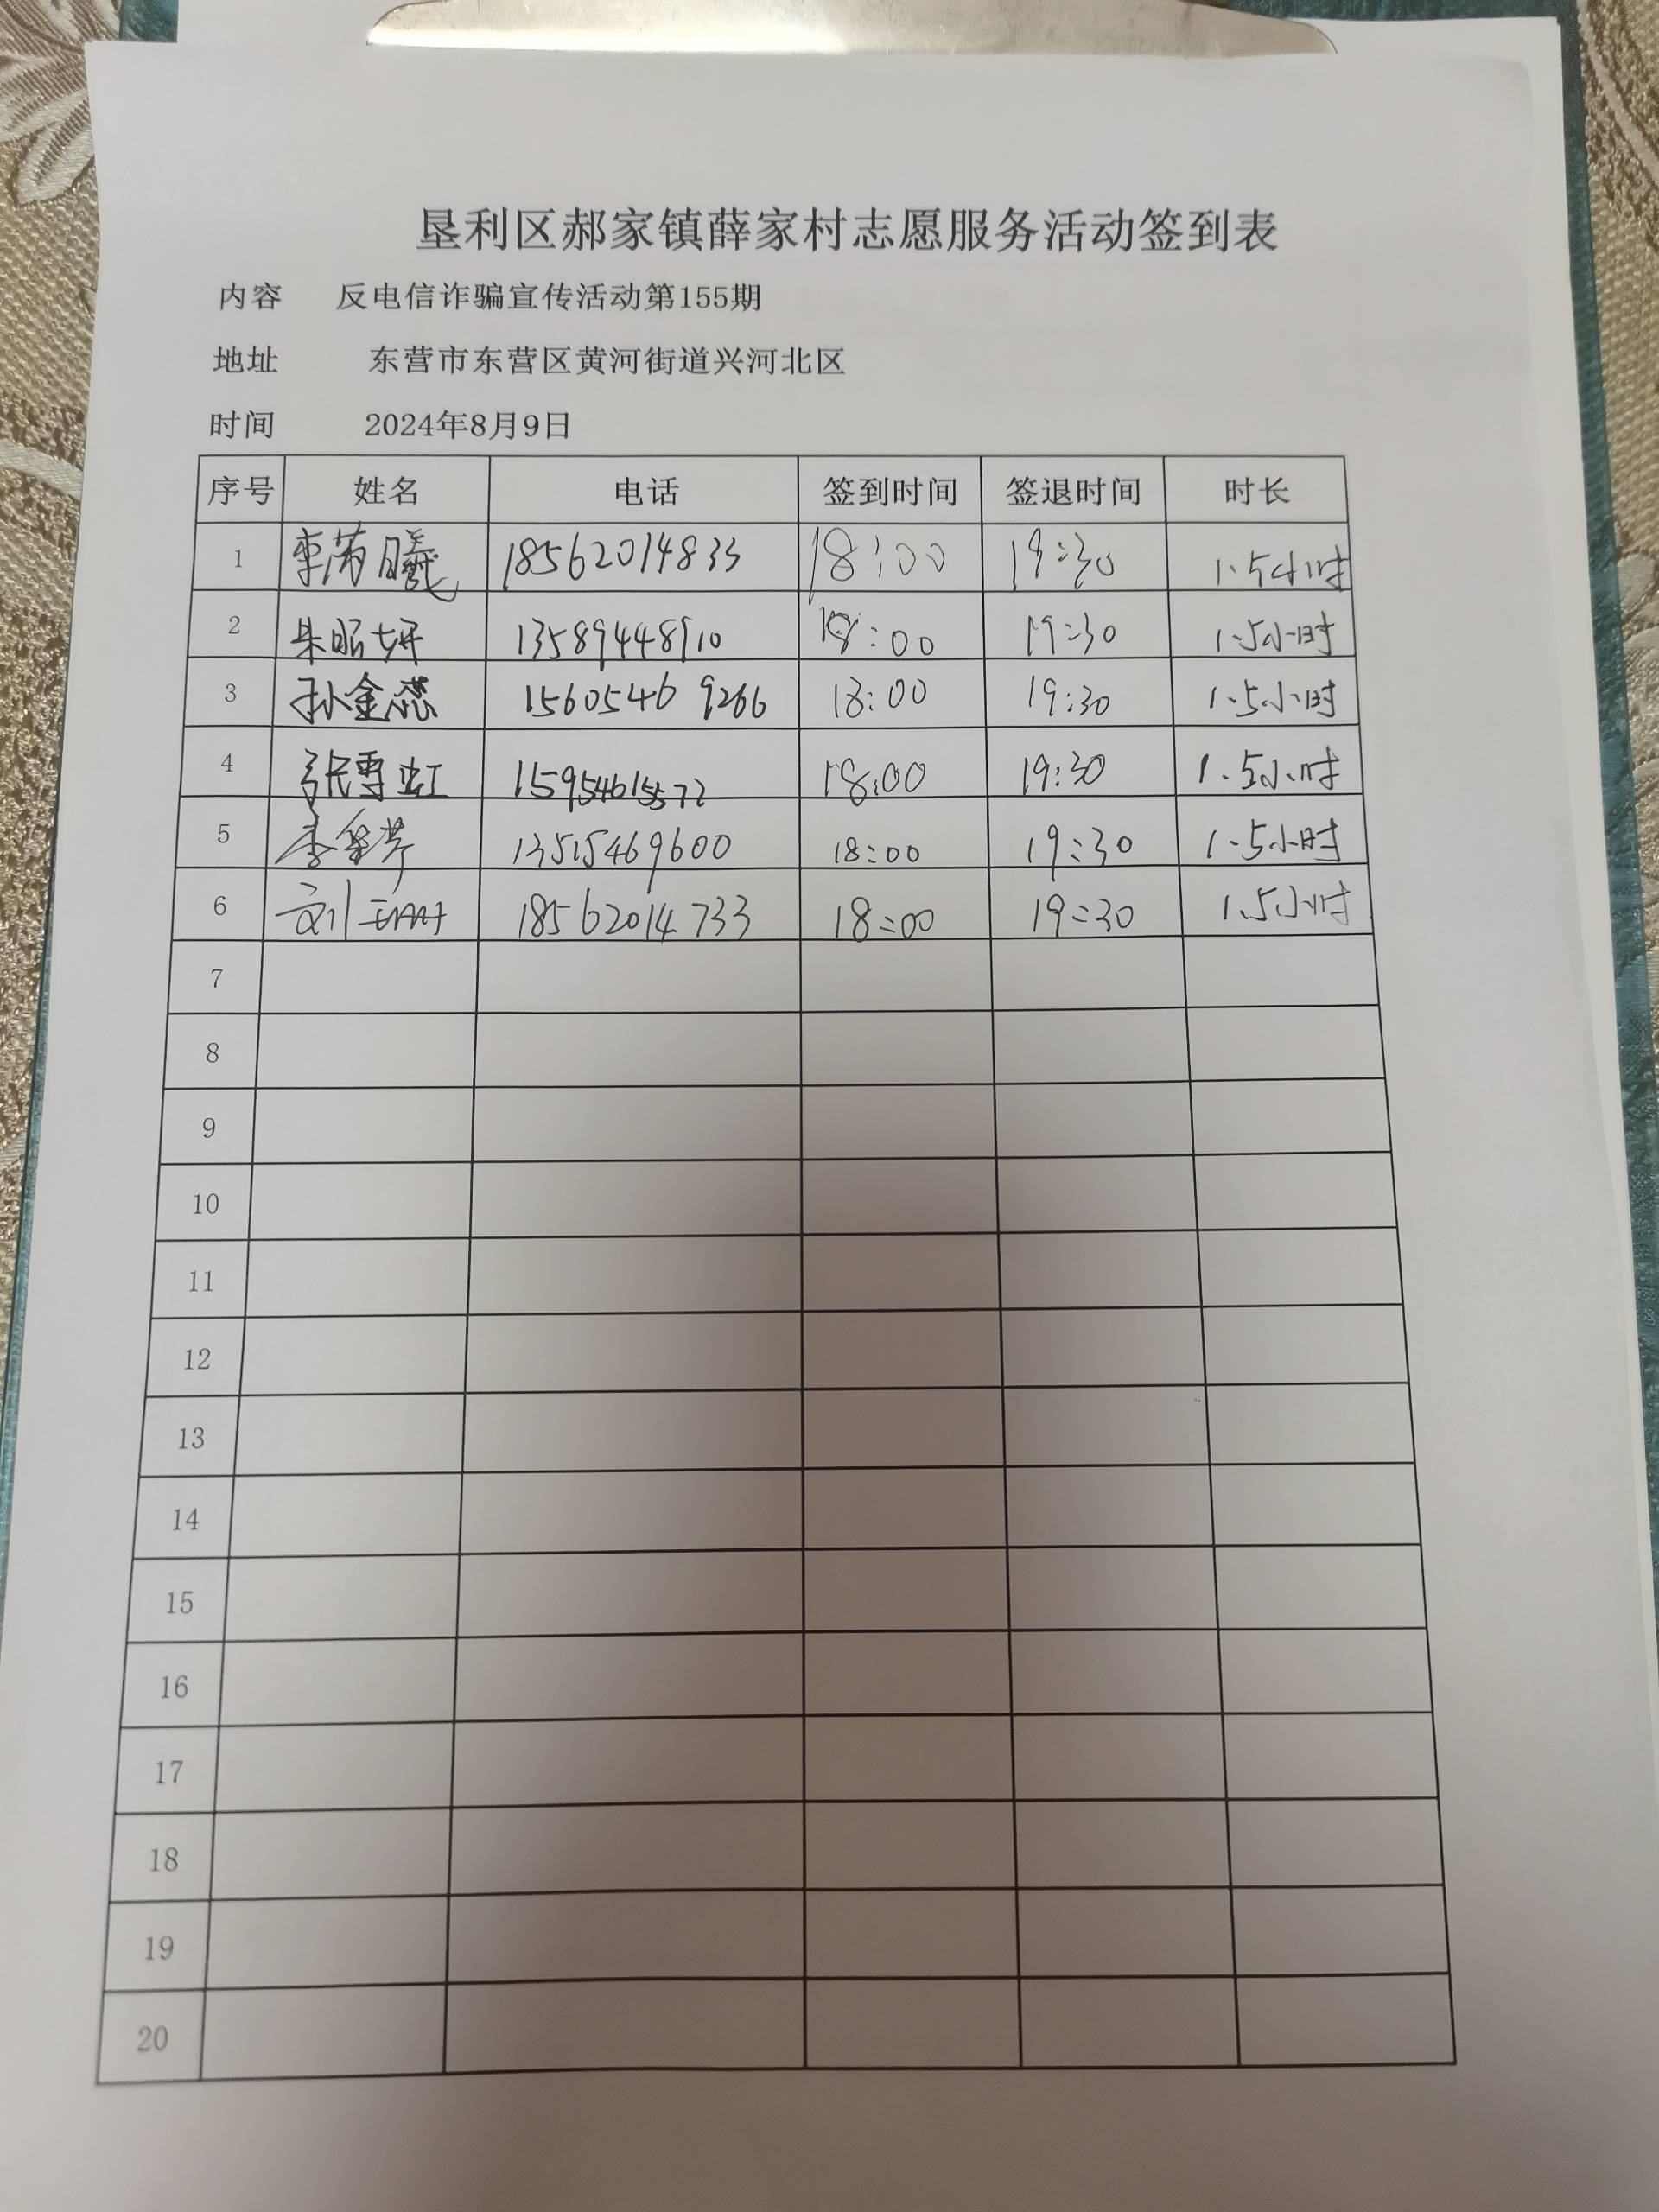 垦利区郝家镇薛家村志愿服务活动签到表
内容 反电信诈骗宣传活动第155期
地址 东营市东营区黄河街道兴河北区
时间 2024年8月9日
序号 姓名 电话 签到时间 签退时间 时长
1 18562014833 18:00 19:30 1.5小时
2 朱昭妍 13589448910 18:00 19:30 1.5小时
3 孙金蕊 15605469266 18:00 19:30 1.5小时
4 张雪虹 15954615572 18:00 19:30 1.5小时
5 13515469600 18:00 19:30 1.5小时
6 刘珊珊 18562014733 18:00 19:30 1.5小时
7
8
9
10
11
12
13
14
15
16
17
18
19
20